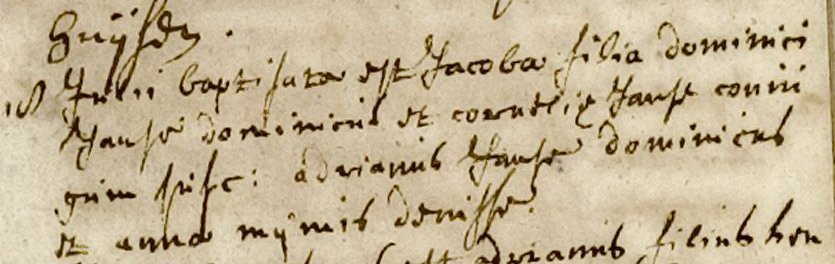 Huijsen.
18 Junii baptisata est Jacoba filia dominici
Janse dominicus et corneliæ Janse coniu
gum susc: adrianus Janse dominicus
et anna mijnis denisse.
est adrianus filius hen